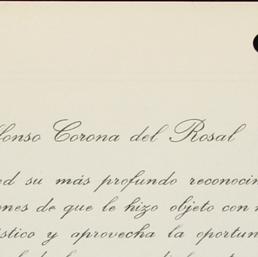 fonso Corona del Rosal
ed su más profundo reconocin
nes de que le hizo objeto con
stico y aprovecha la oportun